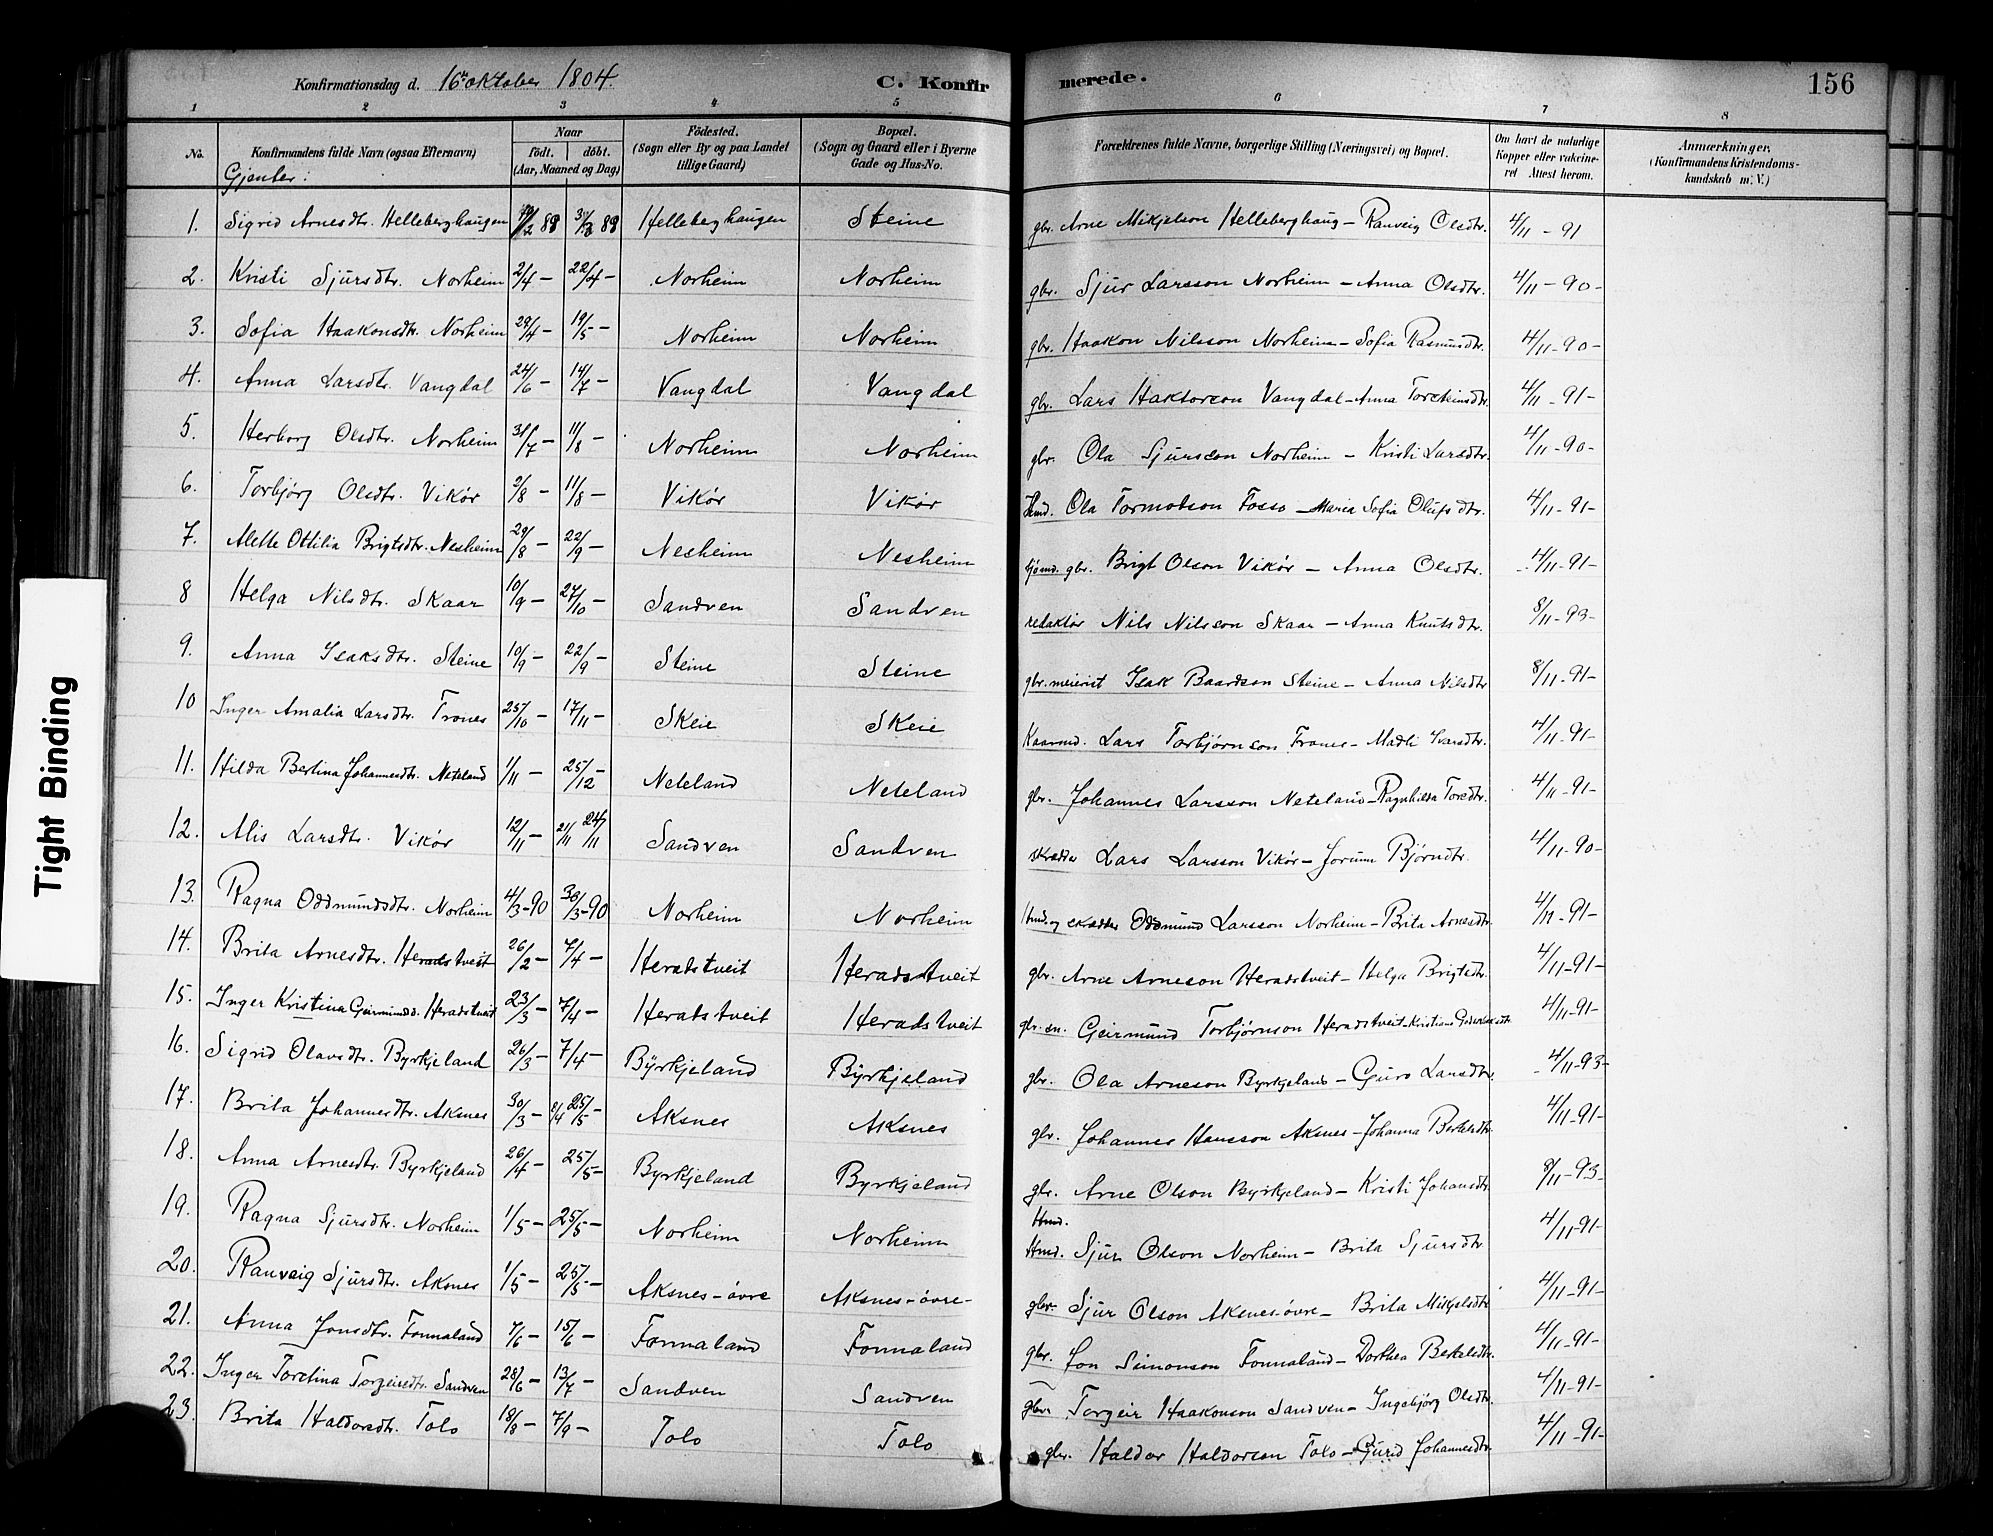 Konfirmationsdag d. 16de oktober 1804.
C. Konfir
merede.
156
1 2 3 4 5 6 7 8
No. Konfirmandens fulde Navn (ogsaa Efternavn) Naar födt. döbt. (Aar, Maaned og Dag) Födested. (Sogn eller By og paa Landet tillige Gaard) Bopæl. (Sogn og Gaard eller i Byerne Gade og Hus-No. Forældrenes fulde Navne, borgerlige Stilling (Næringsvei) og Bopæl. Om havt de naturlige Kopper eller vakcineret Attest herom. Anmærkninger, (Konfirmandens Kristendomskundskab m. V.)
Gjenter:
1. Sigrid Arnesdtr. Helleberghaugen 89 89 Helleberghaugen Steine gbr. Arne Mikjelson Helleberghaug – Ranveig Olsdtr. 4/11 – 91
2. Kristi Sjursdtr. Norheim 2/4 – 22/4 – Norheim Norheim gbr. Sjur Larsson Norheim – Anna Olsdtr. 4/11 – 90 –
3. Sofia Haakonsdtr. Norheim 29/4 – 19/5 – Norheim Norheim gbr. Haakon Nilsson Norheim – Sofia Rasmusdtr. 4/11 – 90 –
4. Anna Larsdtr. Vangdal 24/6 – 14/7 – Vangdal Vangdal gbr. Lars Haktorson Vangdal – Anna Torsteinsdtr. 4/11 – 91 –
5. Herborg Olsdtr. Norheim 31/7 – 11/8 – Norheim Norheim gbr. Ola Sjursson Norheim – Kristi Larsdtr. 4/11 – 90 –
6. Torbjörg Olsdtr. Vikör 2/8 – 11/8 – Vikör Vikör Hmd. Ola Tormodson Fosso – Maria Sofia Olufsdtr. 4/11 – 91 –
7. Alette Ottilia Brigtsdtr. Nesheim 29/8 – 22/9 – Nesheim Nesheim gbr. Brigt Olson Vikör – Anna Olsdtr. 4/11 – 91 –
8 Helga Nilsdtr. Skaar 10/9 – 27/10 – Sandven Sandven redaktör Nils Nilsson Skaar – Anna Knutsdtr. 8/11 – 93 –
9. Anna Isaksdtr. Steine 10/9 – 22/9 – Steine Steine gbr. meierist Isak Baardson Steine – Anna Nilsdtr 8/11 – 91 –
10 Inger Amalia Larsdtr. Trones 25/10 – 17/11 – Skeie Skeie Kaarmd. Lars Torbjørnson Trones – Madli Ivarsdtr. 4/11 – 91 –
11. Hilda Bertina Johannesdtr. Neteland 1/11 – 25/12 – Neteland Neteland gbr. Johannes Larsson Neteland – Ragnhilda Toredtr. 4/11 – 91 –
12. Alis Larsdtr. Vikör 12/11 – 21/11 24/11 Sandven Sandven skrædder Lars Larsson Vikör – Jorunn Björndtr. 4/11 – 90 –
13. Ragna Oddmundsdtr. Norheim 4/3 – 90 30/3 – 90 Norheim Norheim Hmd. og skrædder Oddmund Larsson Norheim – Brita Arnesdtr. 4/11 – 91 –
14. Brita Arnesdtr. Heradstveit 26/2 – 7/4 – Heradstveit Heradstveit gbr. Arne Arneson Heradstveit – Helga Brigtsdtr. 4/11 – 91 –
15. Inger Kristina Geirmundsd. Heradstveit 23/3 – 7/4 – Heradstveit Heradstveit gbr. sn. Geirmund Torbjørnson Heradstveit – Kristiana 4/11 – 91 –
16. Sigrid Olavsdtr. Byrkjeland 26/3 – 7/4 – Byrkjeland Byrkjeland gbr. Ola Arneson Byrkjeland – Guro Larsdtr. 4/11 – 93 –
17. Brita Johannesdtr. Aksnes 30/3 – 8/4 25/5 – Aksnes Aksnes gbr. Johannes Hansson Aksnes – Johanna 4/11 – 91 –
18. Anna Arnesdtr. Byrkjeland 26/4 – 25/5 – Byrkjeland Byrkjeland gbr. Arne Olson Byrkjeland – Kristi Johansdtr. 8/11 – 93 –
19. Ragna Sjursdtr. Norheim 1/5 – 25/5 – Norheim Norheim Hmd. Hmd. Sjur Olson Norheim – Brita Sjursdtr 4/11 – 91 –
20. Ranveig Sjursdtr. Aksnes 1/5 – 25/5 – Aksnes-övre Aksnes-övre gbr. Sjur Olson Aksnes-övre – Brita Mikjelsdtr 4/11 – 91 –
21. Anna Jonsdtr. Fonnaland 7/6 – 15/6 – Fonnaland Fonnaland gbr. Jon Simonson Fonnaland – Dorthea 4/11 – 91 –
22. Inger Torstina Torgeirsdtr. Sandven 28/6 – 13/7 – Sandven Sandven gbr. Torgeir Haakonson Sandven – Ingebjörg Olsdtr. 4/11 – 91 –
23. Brita Haldorsdtr. Tolo 18/8 – 7/9 – Tolo Tolo gbr. Haldor Haldorson Tolo – Gurid Johannesdtr. 4/11 – 91 –
Tight Binding